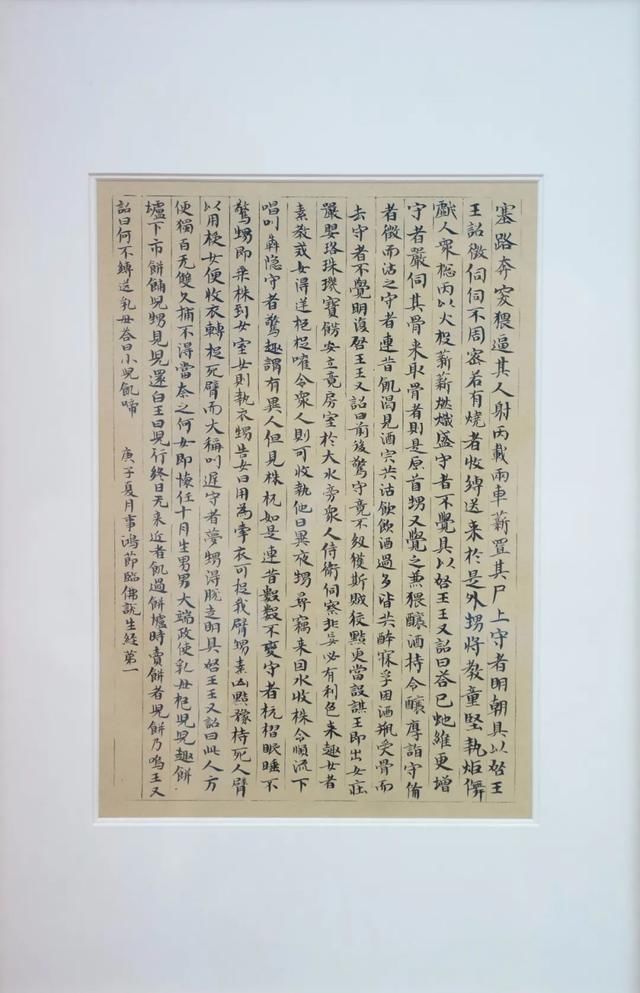 塞路奔突猥逼其人射丙載兩車薪置其尸上守者明朝具以啓王
王詔微伺伺不周密若有燒者收縛送來於是外甥將教童竪執炬儛
戲人衆總丙以火投薪薪燃熾盛守者不覺具以啓王王又詔曰若已虵維更增
守者嚴伺其骨来取骨者則是原首甥又覺之兼猥釀酒特令釀厚詣守備
者微而沽之守者連昔飢渴見酒宗共沽飲飲酒過多皆共醉寐孚因酒瓶受骨而
去守者不覺明復啓王王又詔曰前後警守竟不級獲斯賊狡黠更當設謀王即出女莊
嚴嬰珞珠璣寶飾安立竟房室於大水旁衆人侍衛伺察非妄必有利色来趣女者
素教戒女得逆抱捉喚令衆人則可收執他日異夜甥尋竊来因水收株令順流下
唱叫犇隐守者驚趣謂有異人但見株杌如是連昔數數不變守者杭㨨眠睡不
驚甥即乘株到女室女則執衣甥告女曰用為牽衣可捉我臂甥素凶黠豫持死人臂
以用授女便收衣轉捉死臂而大稱叫遅守者夢甥得脱走明具啓王王又詔曰此人方
便獨百无雙久捕不得當奈之何女即懷任十月生男男大端政使乳母抱兒兒趣餅
壚下市餅餔兒甥見兒還白王曰兒行終日无来近者飢過餅壚時賣餅者兒餅乃嗚王又
詔曰何不縛送乳母荅曰小兒飢啼　庚子夏月事鴻節臨佛說生經第一